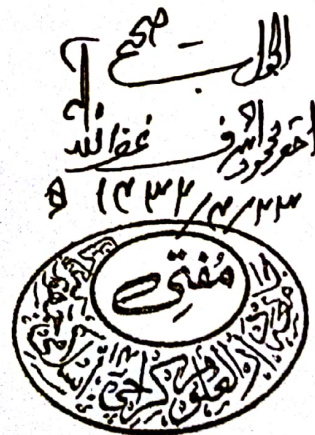 الجواب صحیح
احقر محمود اشرف غفر اللہ لہ
۲۳/۴/۱۴۳۲ ھ
مفتی
دارالعلوم کراچی